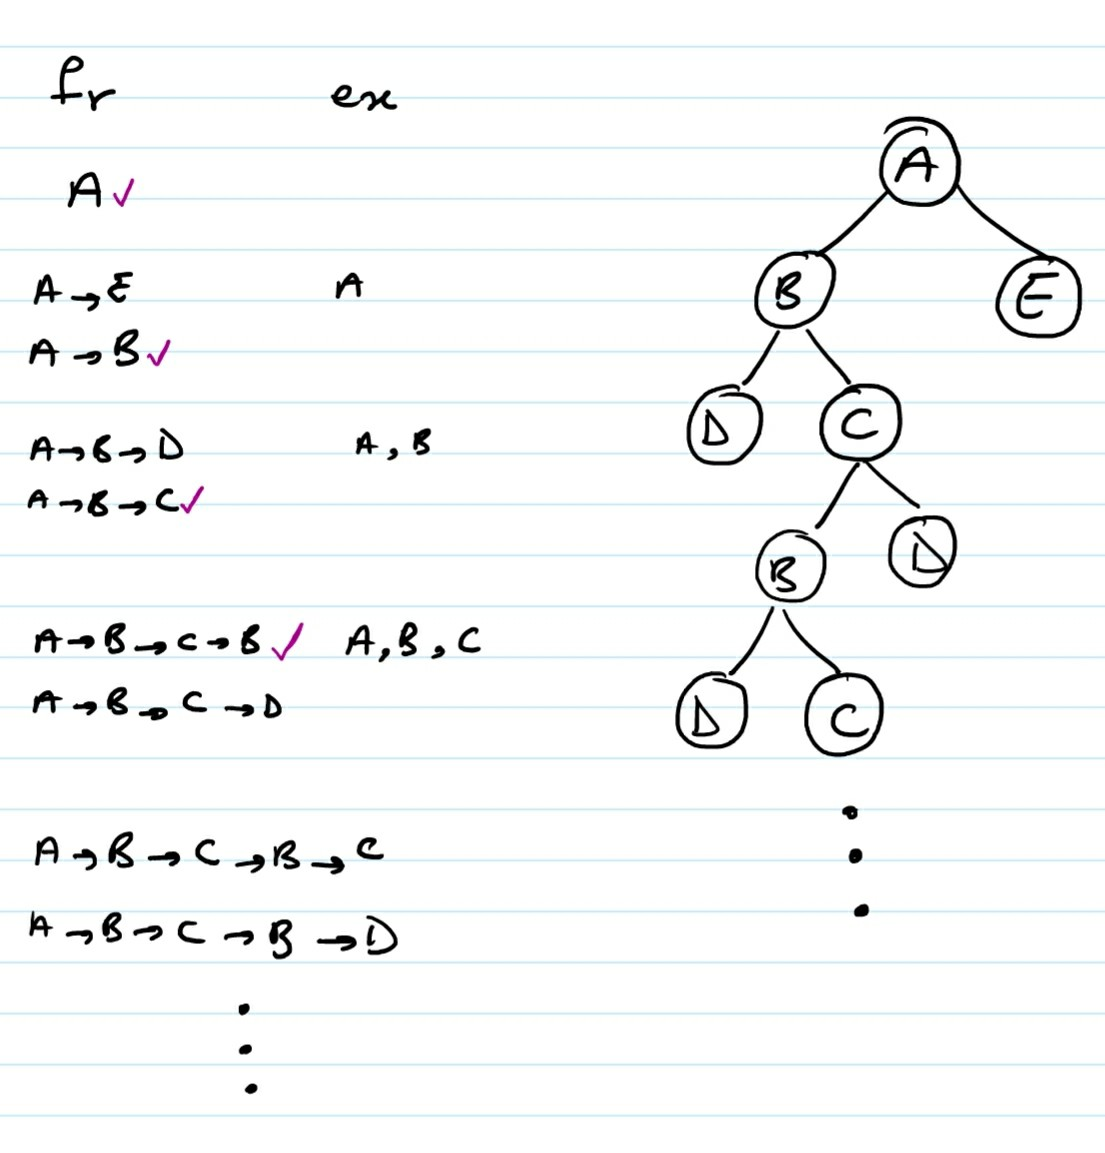 fr ex
A✓
A→E A
A→B✓
A→B→D A, B
A→B→C✓
A→B→C→B✓ A, B, C
A→B→C→D
A→B→C→B→C
A→B→C→B→D
A
B E
D C
B D
D C